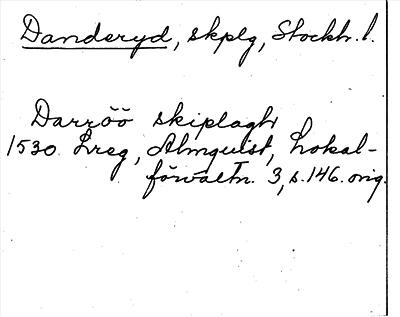 Danderyd, skplg, Stockh. l.
Darröö skiplaghr
1530 Lreg, Almquist, Lokal-
förvaltn. 3, s. 146. orig.